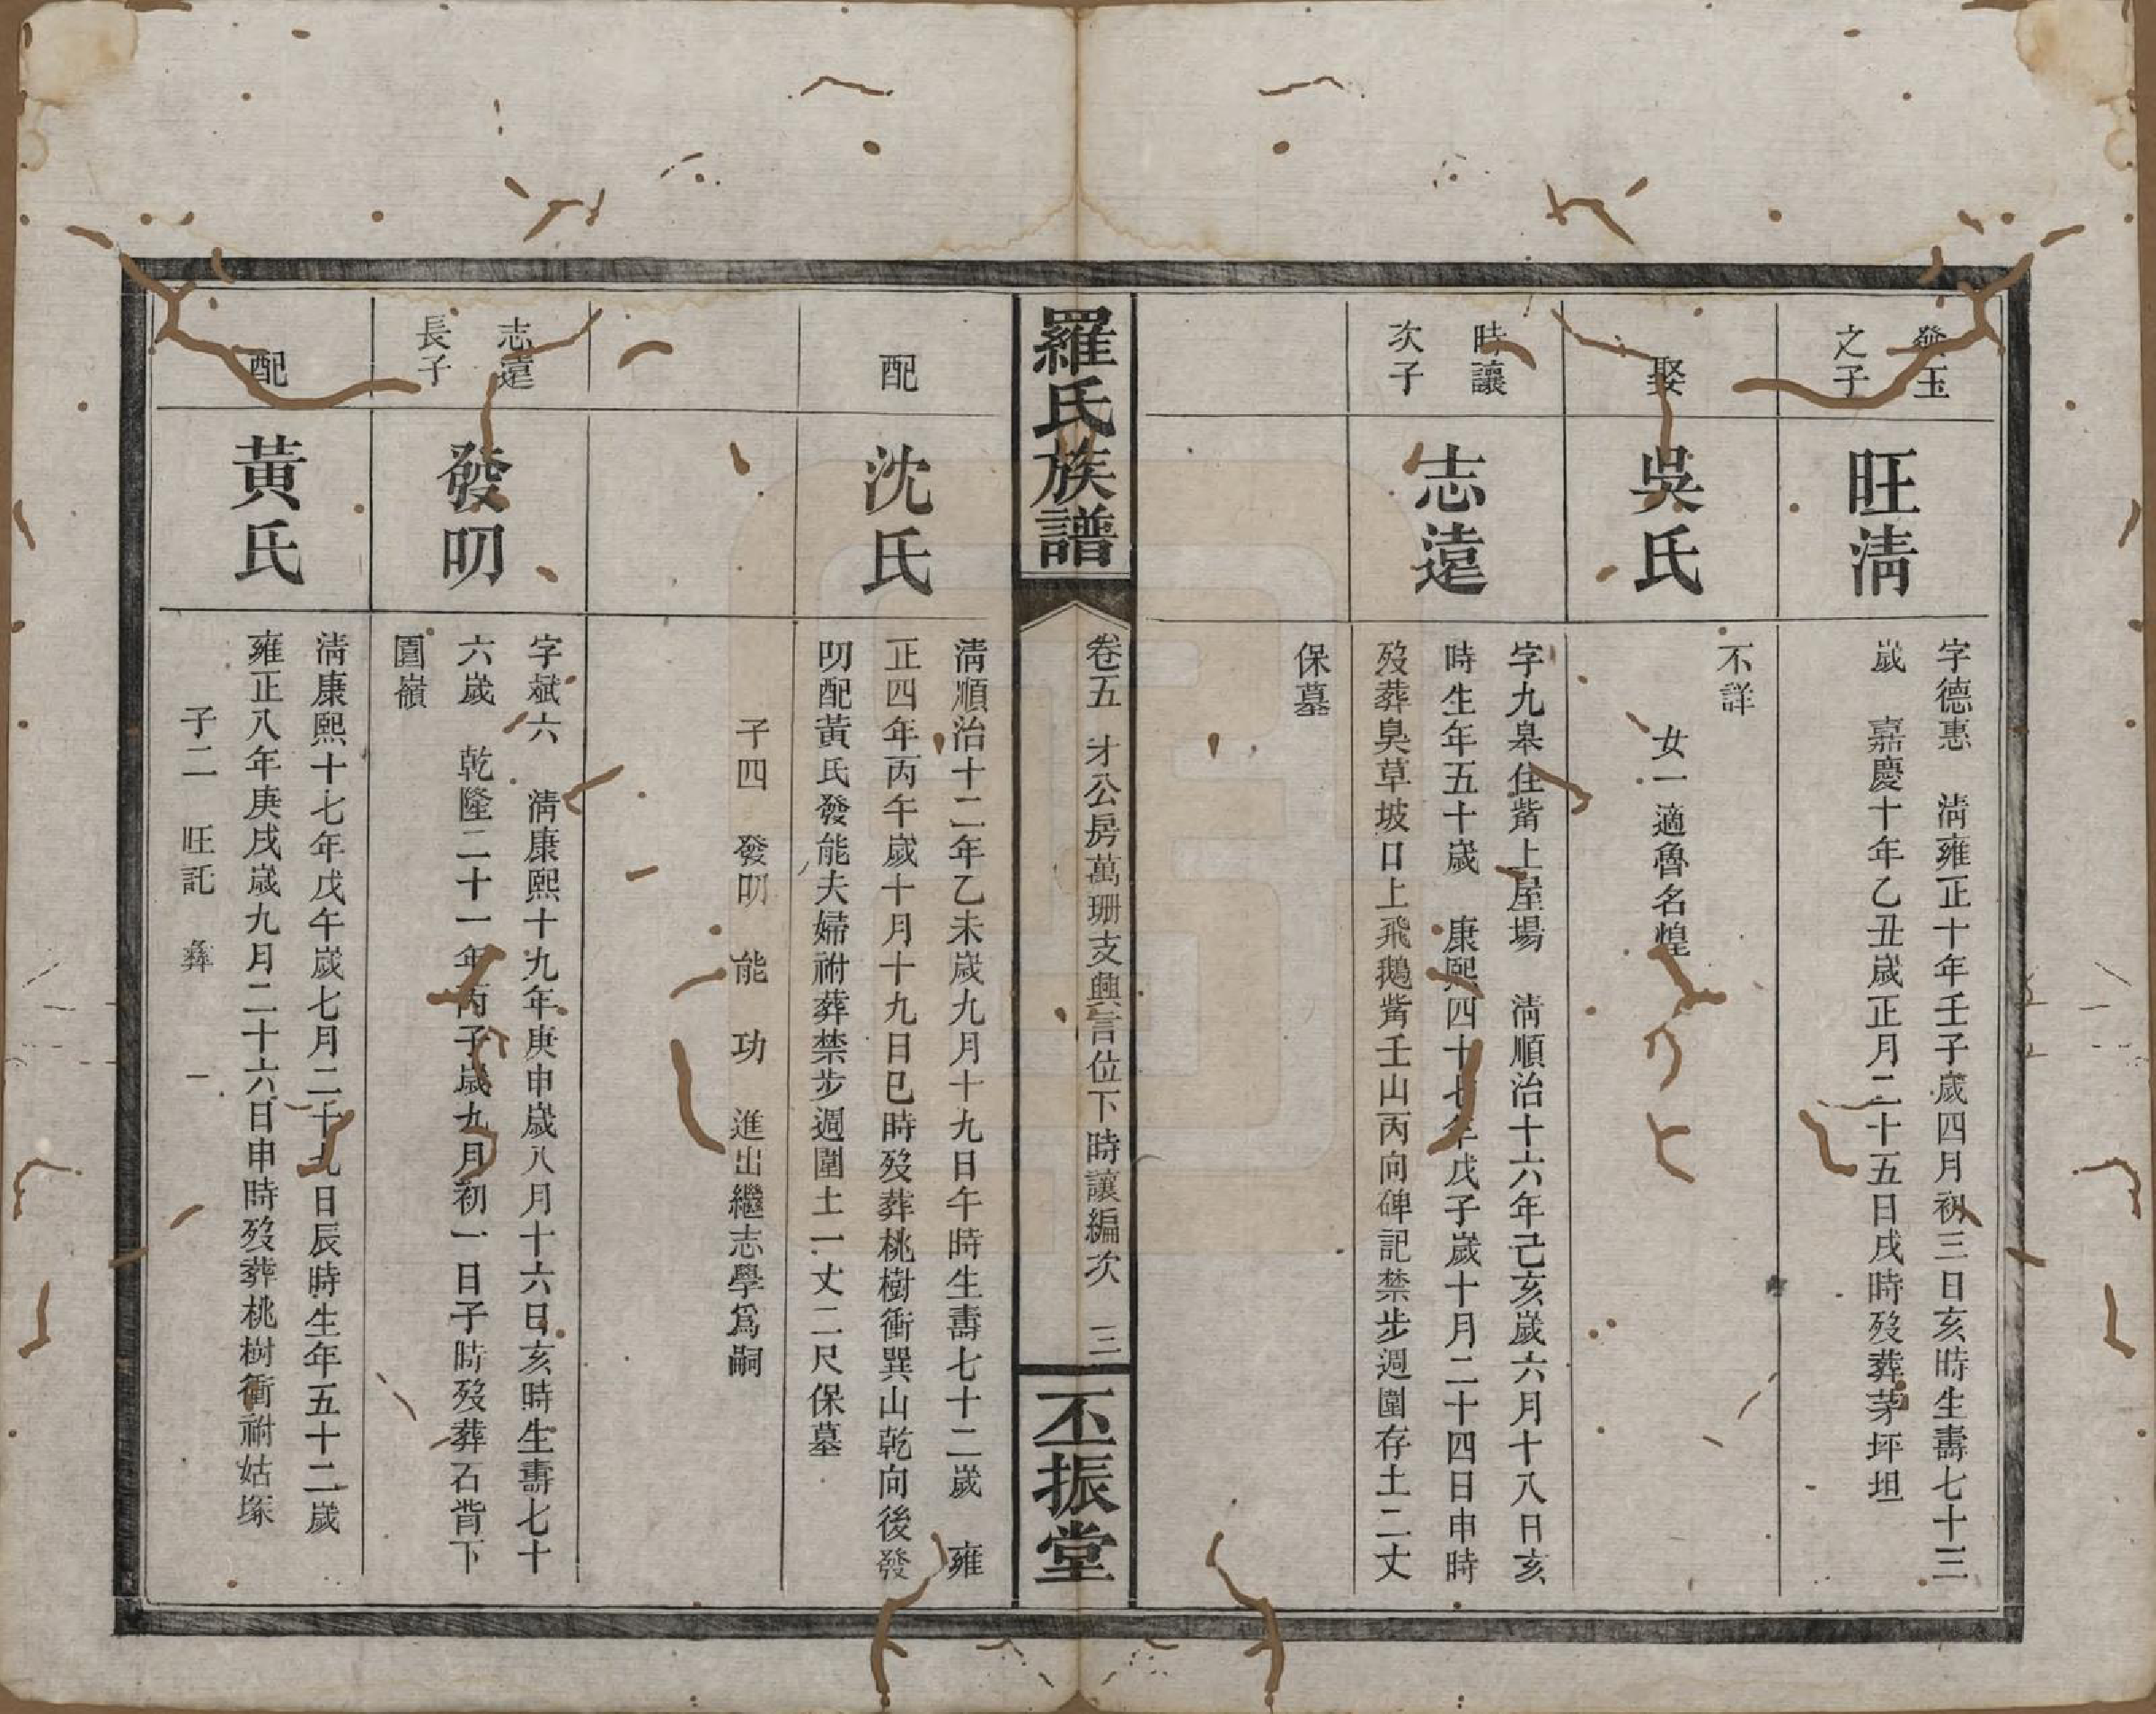 發玉
之子
旺淸
字德惠　淸雍正十年壬子歲四月初三日亥時生壽七十三
歲　嘉慶十年乙丑歲正月二十五日戌時歿葬茅坪坦
娶
吳氏
不詳
女一適魯名煌
時讓
次子
志遠
字九皋住觜上屋場　淸順治十六年己亥歲六月十八日亥
時生年五十歲　康熙四十七年戊子歲十月二十四日申時
歿葬臭草坡口上飛鵝觜壬山丙向碑記禁步週圍存土二丈
保墓
羅氏族譜
卷五　才公房萬珊支興言位下時讓編次　三
丕振堂
配
沈氏
淸順治十二年乙未歲九月十九日午時生壽七十二歲　雍
正四年丙午歲十月十九日巳時歿葬桃樹衝巽山乾向後發
叨配黃氏發能夫婦祔葬禁步週圍土一丈二尺保墓
子四　發叨　能　功　進出繼志學爲嗣
志遠
長子
發叨
字斌六　淸康熙十九年庚申歲八月十六日亥時生壽七十
六歲　乾隆二十一年丙子歲九月初一日子時歿葬石背下
圓嶺
配
黃氏
淸康熙十七年戊午歲七月二十九日辰時生年五十二歲
雍正八年庚戌歲九月二十六日申時歿葬桃樹衝祔姑塚
子二　旺託　彝